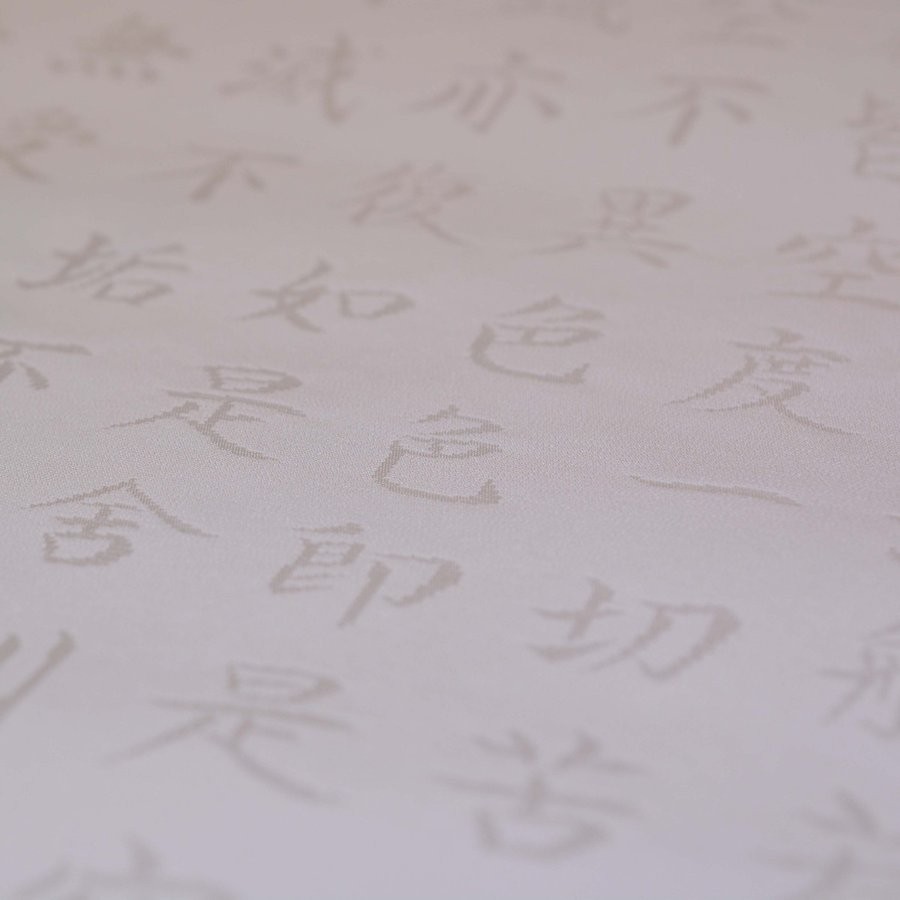 皆空度一切苦
不異色色即是
亦復如是舍利
滅不垢不
無受